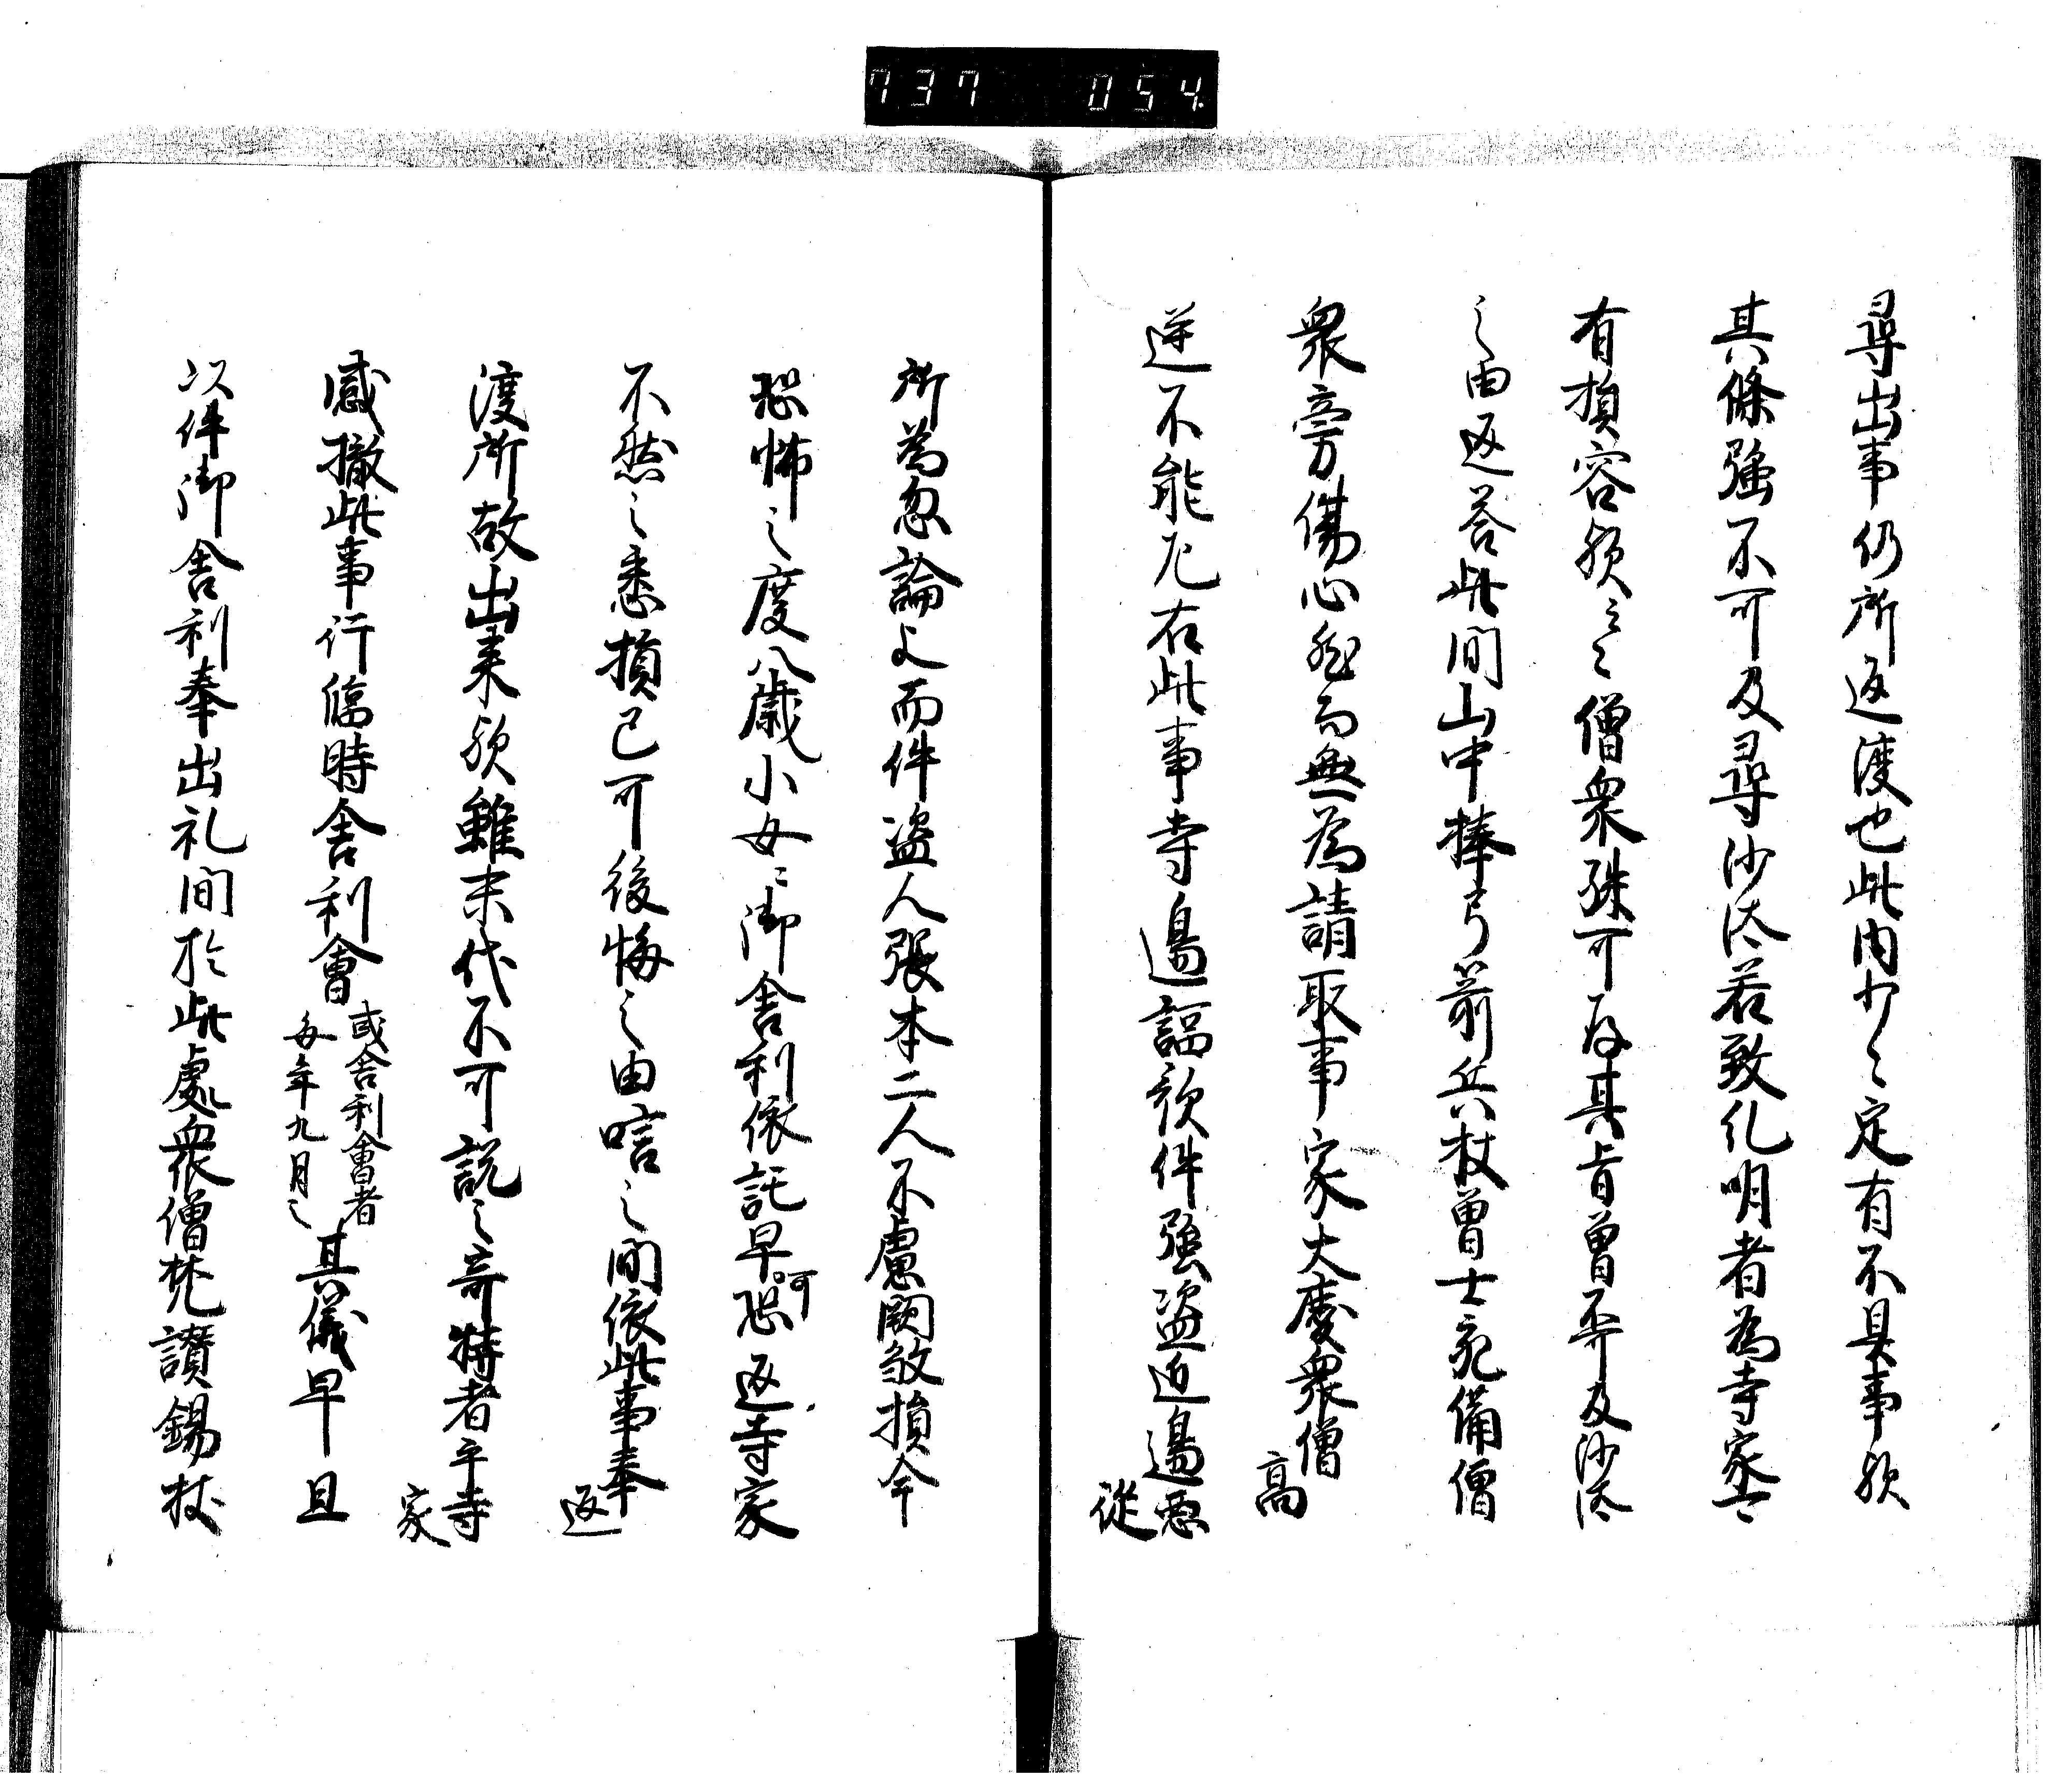 737 054
尋出事仍所返渡也此内少〻定有不具事歟
其條強不可及尋沙汰若致礼明者為寺家云
有損容歟云〻僧衆殊可存其旨曽不及沙汰
之由返答此間山中捧弓箭兵杖曽士宛備僧
衆旁傷心然而無為請取事家大慶衆僧
高
逆不能左右此事寺邉謳歌件強盗近邉悪
従
所為忽論之而件盗人張本二人不慮闕敓損今
恐怖之度八歳小女〻御舎利依託早可恐返寺家
不然之悉損已可後悔之由唁之間依此事奉
返
渡所故出来歟雖末代不可説之奇特者乎寺
家
感撤此事行臨時舎利會
或舎利會者
毎年九月之
其儀早旦
以件御舎利奉出礼間於此處衆僧梵讃錫杖